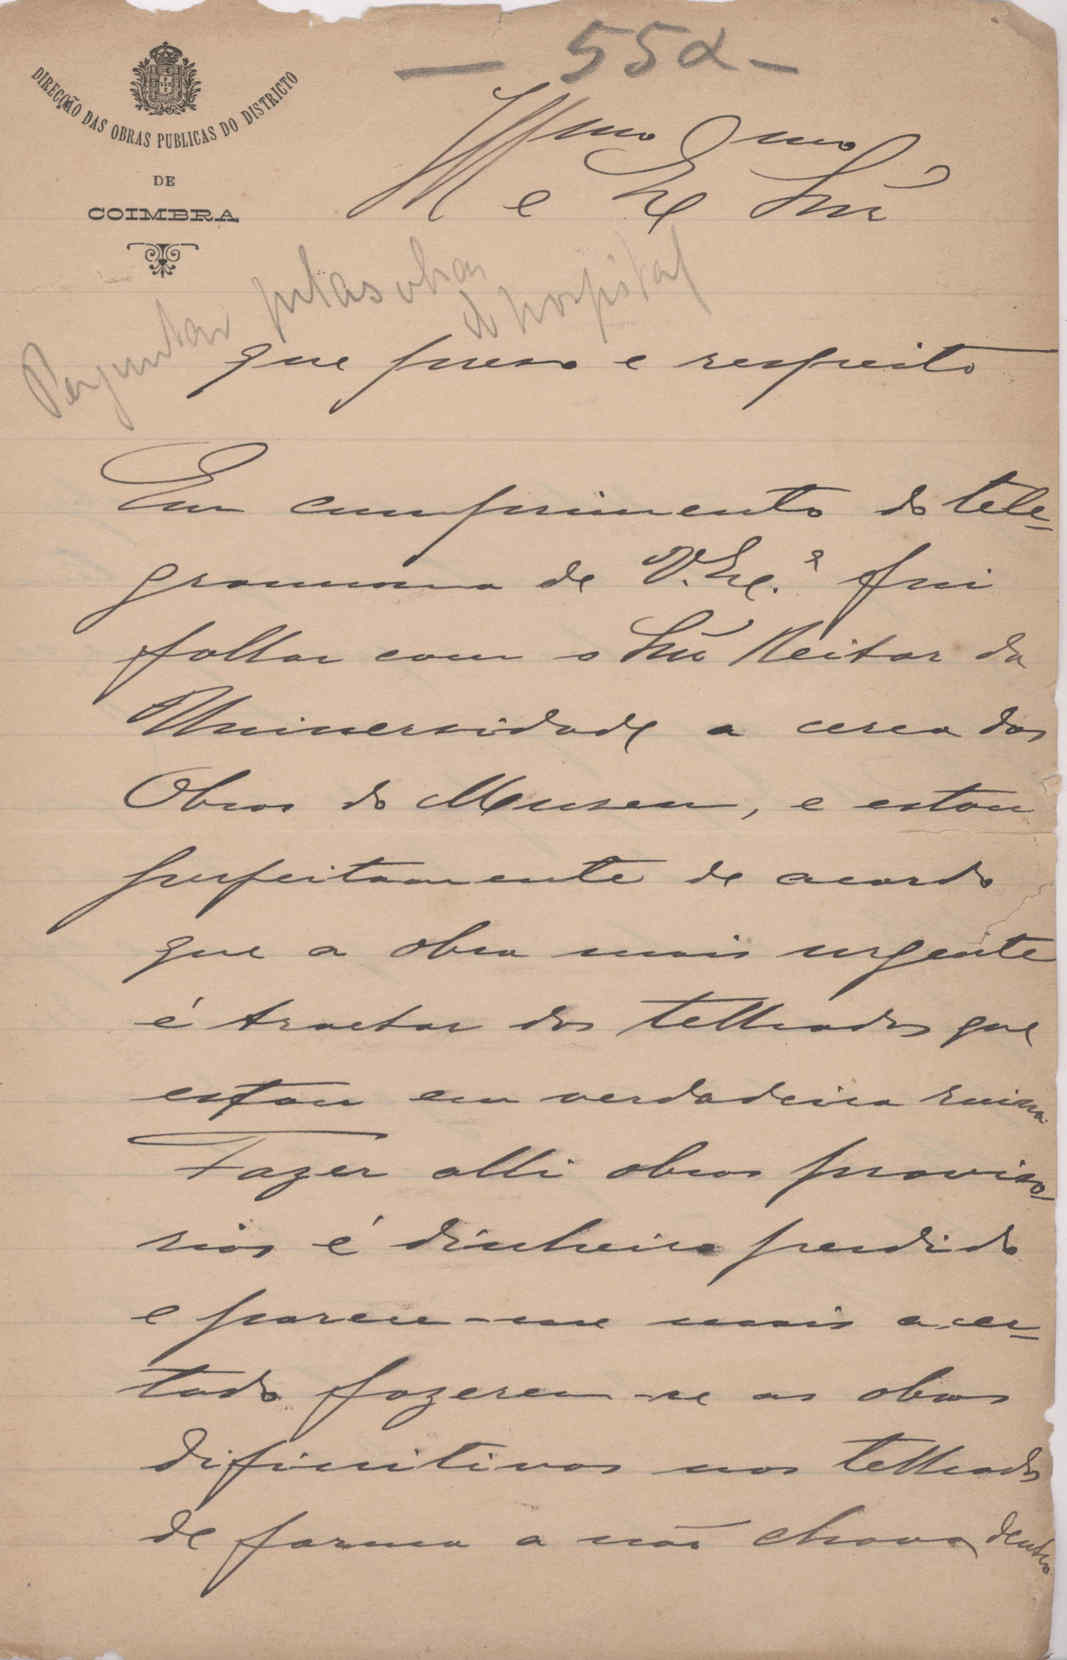 — 55α —
DIRECÇÃO DAS OBRAS PUBLICAS DO DISTRICTO
DE
COIMBRA
Illmo e Exmo Snr
Perguntar pelas obras
do hospital
que preso e respeito
Em cumprimento do tele-
gramma de V. Exª fui
fallar com o Snr Reitor da
Universidade a cerca das
Obras do Museu, e estou
perfeitamente de acordo
que a obra mais urgente
é tractar dos telhados que
estão em verdadeira ruina.
Fazer alli obras proviso-
rias é dinheiro perdido
e parece-me mais acer-
tado fazerem-se as obras
difinitivas nos telhados
de forma a não chover dentro